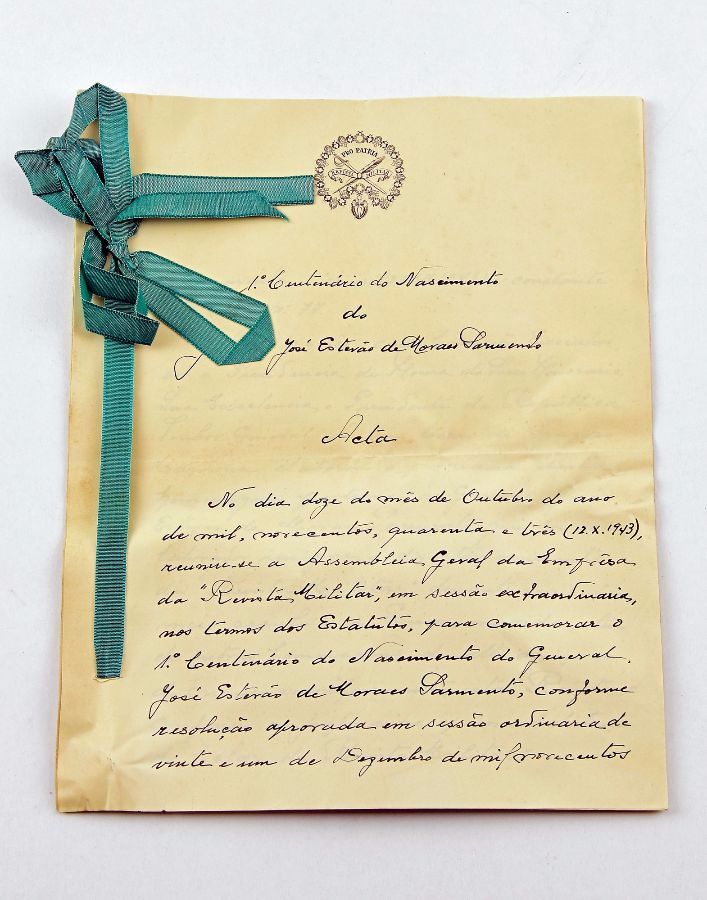 PRO PATRIA
REVISTA MILITAR
1.º Centenário do Nascimento
do
José Estevão de Moraes Sarmento
Acta
No dia doze do mês de Outubro do ano
de mil, novecentos, quarenta e três (12.X.1943),
reuniu-se a Assembleia Geral da Emprêsa
da "Revista Militar", em sessão extraordinaria,
nos termos dos Estatutos, para comemorar o
1.º Centenário do Nascimento do General
José Estevão de Moraes Sarmento, conforme
resolução aprovada em sessão ordinaria de
vinte e um de Dezembro de mil novecentos